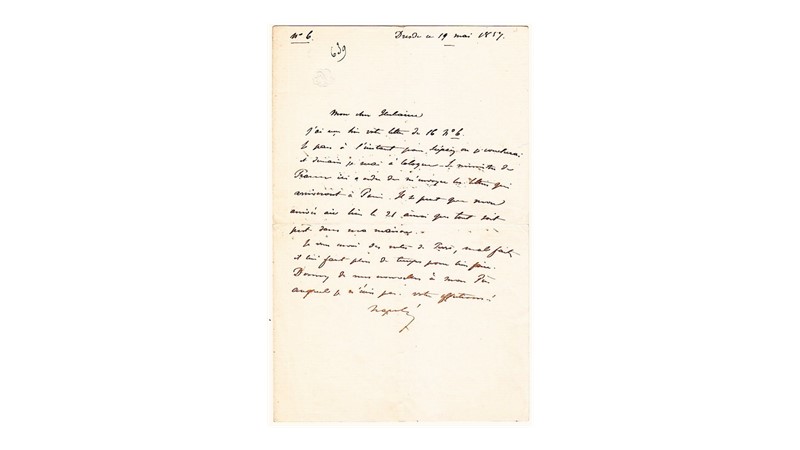 N° 6. Dresde ce 19 mai 1857.
639
Mon cher
j'ai reçu hier votre lettre du 16 N° 6.
Je pars à l'instant pour Leipzig où je coucherai
et demain je serai à Cologne. Le ministre de
France ici a ordre de m'envoyer les lettres qui
arriveront à Paris. Il se peut que mon
arrivée ait lieu le 21 ainsi que tout soit
prêt dans ma maison.
Je vous envoi des notes de mal fait,
il lui faut plus de temps pour les faire.
Donnez de mes nouvelles à mon
auquel je n'écris pas. votre
Napoléon